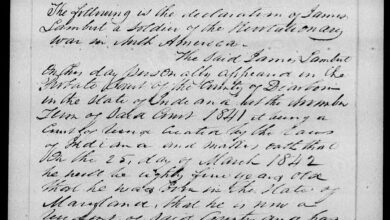 The following is the declaration of James
Lambert a Soldier of the Revolutionary
war in North America.
The Said James Lambert
on this day personally appeared in the
Probate Court of the County of Dearborn
in the State of Indiana at the November
Term of Said Court 1841, it being a
Court for being created by the Laws
of Indiana and makes oath that
On the 25. day of March 1842
he will be eighty five years old
that he was born in the State of
Maryland, that he is now a
of said County and has